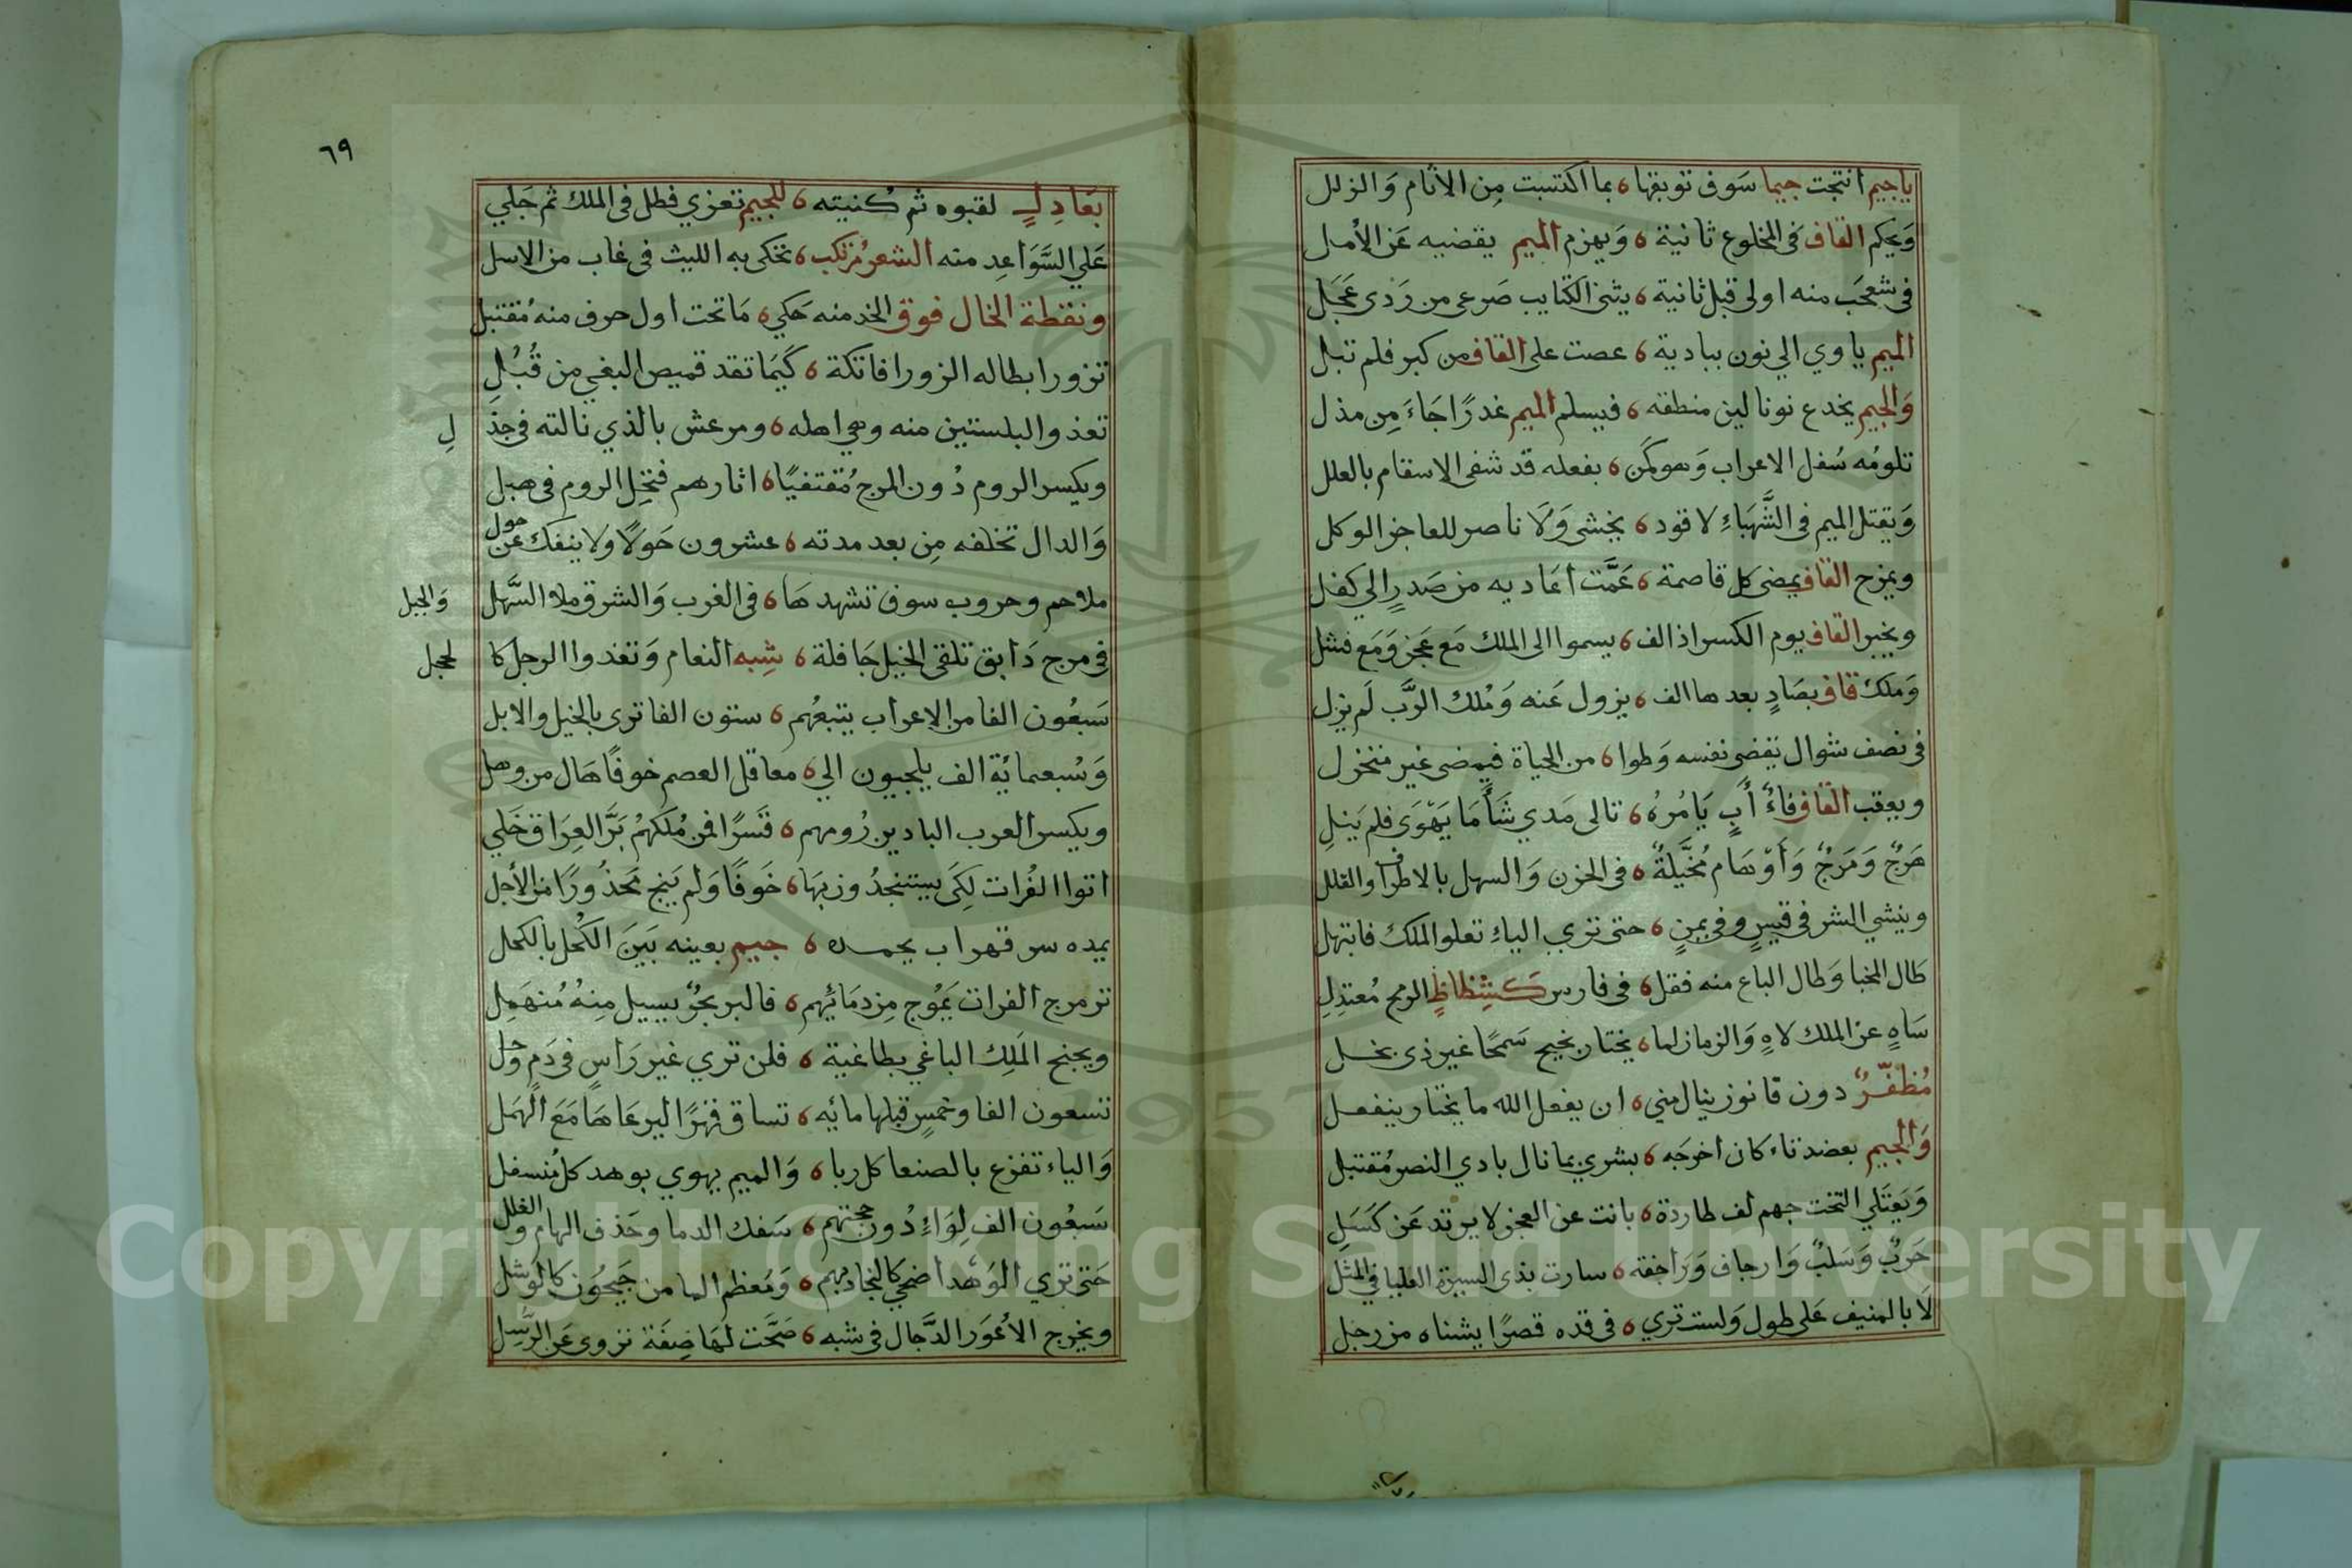 ياجيم انتجت جيما سوف توبقها ٥ بما اكتسبت مِن الاثام وَالزلل
وَيحكم القاف فى المخلوع ثانية ٥ وَيهزم الميم يقضيه عَن الأمل
فى شعجَب منه اولى قبل ثانية ٥ يثنى الكتايب صَرعى من رَدى عَجَل
الميم ياوي الي نون ببادية ٥ عصت على القاف من كبر فلم تبل
وَالجيم يخدع نونا لين منطقه ٥ فيسلم الميم غدرًا جَاءَ مِن مذل
تلومُه سُفل الاعراب وَهو كَمَن ٥ بفعله قد شفى الاسقام بالعلل
وَيقتل الميم فى الشَّهبَاءِ لا قود ٥ يخشى وَلَا ناصر للعاجز الوكل
ويمزح القاف يمضى كل قاصمة ٥ عَمَّت اعَاديه من صَدرٍ الي كفل
ويخبر القاف يوم الكسر اذ الف ٥ يسموا الى الملك مَع عَجز وَمَع فشل
وَملك قاف بصَادٍ بعدها الف ٥ يزول عَنه وَمُلك الرَّب لَم يزل
فى نصف شوال يقضى نفسه وَطوا ٥ من الحياة فيمضى غير منخزل
ويعقب القاف فاءٌ أبٍ يَامُرهُ ٥ تالى مَدي شَأَمَا يَهْوَى فلم يَنلِ
هَرجٌ وَمَرَجٌ وَأَوْهَام مُخَيَّلَةٌ ٥ فى الحزن وَالسهل بالاطراف والقلل
وينشي الشر فى قيسٍ وفى يمنٍ ٥ حتى تري الياءِ تعلو الملك فابتهل
طال المخبا وَطال الباع منه فقل ٥ فى فارس كَشِظاظِ الرمح مُعتدِلِ
سَاهٍ عن الملك لاهٍ وَالزمان لما ٥ يختار بخيح سَمحًا غير ذى بخل
مُظفّرٌ دون قانون ينال مني ٥ ان يفعل الله ما يختار ينفعل
وَالجيم بعضد تاء كان اخرجَه ٥ بشري بما نال بادي النصر مُقتبل
وَيَعتَلي التخت جهم لف طاردة ٥ بانت عن العجز لا يرتد عَن كَسَلِ
حَربٌ وَسَلبٌ وَارجاف وَرَاجفة ٥ سارت بذى السيرة العليا فى المثل
لَا بالمنيف عَلى طول وَلست تري ٥ فى قده قصرًا يشناه من رجل
٦٩
بعَادِلٍ لقبوه ثم كُنيته ٥ للجيم تعزي فطل فى الملك ثم جَلي
عَلي السَّوَاعِد منه الشعرُ مرتكب ٥ تحكى به الليث فى غاب من الاسل
ونقطة الخال فوق الخد منه حَكي ٥ مَا تحت اول حرف منه مُقتبل
تزورا بطاله الزورا فاتكة ٥ كَيمَا تقد قميص البغي من قُبُلِ
تغذ والبلستين منه وهي اهله ٥ ومرعش بالذي نالته فى جذ
لِ
ويكسر الروم دُون المرج مُقتفيًا ٥ اثارهم فتخِل الروم فى هبل
وَالدال تخلفه مِن بعد مدته ٥ عشرون حَولًا وَلا ينفك عن حول
ملاحم وحروب سوف تشهدهَا ٥ فى الغرب وَالشرق ملا السَّهل
وَالجبل
فى مرج دَابق تلقى الخيل جَافلة ٥ شِبه النعام وَتغدوا الرجل كا
لحجل
سَبعُون الفا من الاعراب يتبعُهم ٥ ستون الفا ترى بالخيل والابل
وَسُبعمائة الف يلجيون الي ٥ معاقل العصم خوفًا هَال من وهل
ويكسر العرب البادين رُومهم ٥ قَسرًا فمن مُلكهُم بَرَّ العِرَاق خَلي
اتوا الفُرات لِكَى يستنجدُون بهَا ٥ خَوفًا وَلم يَنج مَحذُورًا من الأجل
يمده سر قهراب يحمده ٥ جيم بعينه بَينَ الكُحل بالكحل
تر مرج الفرات يَمُوج مِن دمَائهم ٥ فالبر بحُرٌ يسيل مِنهُ مُنهَمِل
ويجنح المَلِك الباغي بطاغية ٥ فلن تري غير رَاسٍ فى دَمٍ وَحل
تسعون الفا وخمسٍ قبلها مائه ٥ تساق قهرًا الي رعَاهَا مَعَ الهَمل
وَالياء تفزع بالصنعا كل ربا ٥ وَالميم يهوي بوهد كل مُنسفل
سَبعُون الف لِوَاءٍ دُون حجتهم ٥ سَفك الدما وحَذف الهام والغلل
حَتى تري الوَهْد اضحي كالنجاد بهم ٥ وَمُعظم الما من جَيحُون كالوشل
ويخرج الأعوَر الدَّجال فى شبه ٥ صَحَّت لهَا صِفَة تروى عَن الرُّسِل
Copyright © King Saud University
1957